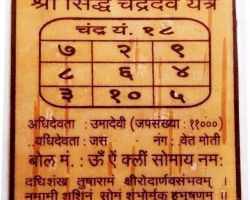 श्री सिद्ध चंद्रदेव यंत्र
चंद्र यं. १८
७ २ ९
८ ६ ४
३ १० ५
अधिदेवता : उमादेवी (जपसंख्या : ११०००)
..यधिदेवता : जस नंग : वेत मोती
बोल मं. : ॐ ऐं क्लीं सोमाय नमः
दधिशंख तुषाराभं क्षीरोदार्णवसंभवम् ।
नमामी शशिनं सोमं शंभोर्मुकुटभूषणम् ।